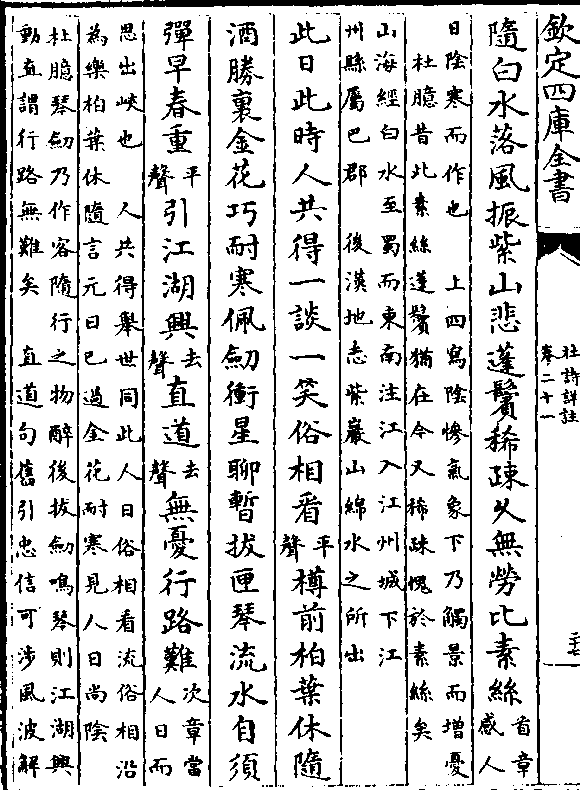 欽定四庫全書
杜詩詳註
卷二十一
隨白水落風振紫山悲蓬鬢稀疎久無勞比素絲首章
感人
日陰寒而作也　上四寫陰慘氣象下乃觸景而增憂
杜臆昔比素絲蓬鬢猶在今又稀疎愧於素絲矣
山海經白水至蜀而東南注江入江州城下江
州縣屬巴郡　後漢地志紫巖山綿水之所出
此日此時人共得一談一笑俗相看平
聲樽前柏葉休隨
酒勝裏金花巧耐寒佩劍衝星聊暫拔匣琴流水自須
彈早春重平
聲引江湖興去
聲直道去
聲無憂行路難次章當
人日而
思出峽也　人共得舉世同此人日俗相看流俗相沿
為樂柏葉休隨言元日已過金花耐寒見人日尚陰
杜臆琴劍乃作客隨行之物醉後拔劍鳴琴則江湖興
動直謂行路無難矣　直道句舊引忠信可涉風波解